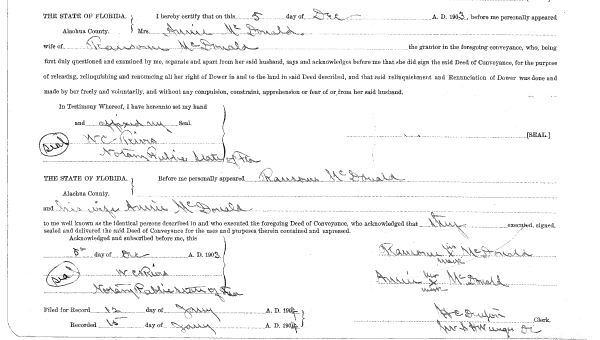 THE STATE OF FLORIDA. } I hereby certify that on this 5 day of Dec A. D. 1903, before me personally appeared
Alachua County. Mrs. Annie McDonald
wife of Ransom McDonald the grantor in the foregoing conveyance, who, being
first duly questioned and examined by me, separate and apart from her said husband, says and acknowledges before me that she did sign the said Deed of Conveyance, for the purpose
of releasing, relinquishing and renouncing all her right of Dower in and to the land in said Deed described, and that said relinquishment and Renunciation of Dower was done and
made by her freely and voluntarily, and without any compulsion, constraint, apprehension or fear of or from her said husband.
In Testimony Whereof, I have hereunto set my hand
and affixed my Seal.
Seal
[SEAL]
W C
Notary Public State of Fla
THE STATE OF FLORIDA. } Before me personally appeared Ransom McDonald
Alachua County.
and his wife Annie McDonald
to me well known as the identical persons described in and who executed the foregoing Deed of Conveyance, who acknowledged that they executed, signed,
sealed and delivered the said Deed of Conveyance for the uses and purposes therein contained and expressed.
Acknowledged and subscribed before me, this
5th day of Dec A. D. 1903
Ransom his x mark McDonald
Seal
W C
Annie her x mark McDonald
Notary Public State of Fla
Filed for Record 12 day of Jany A. D. 1904
Clerk.
Recorded 15 day of Jany A. D. 1904